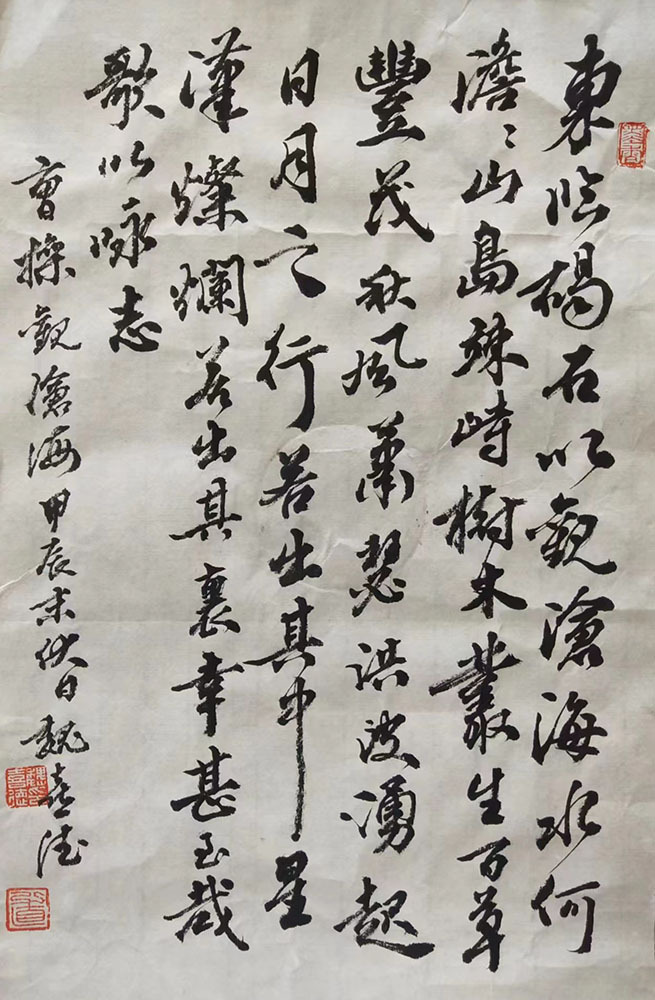 東臨碣石以觀滄海水何
澹〻山島竦峙樹木叢生百草
豐茂秋風蕭瑟洪波湧起
日月之行若出其中星
漢燦爛若出其裏幸甚至哉
歌以咏志
曹操觀滄海甲辰末伏日魏喜德